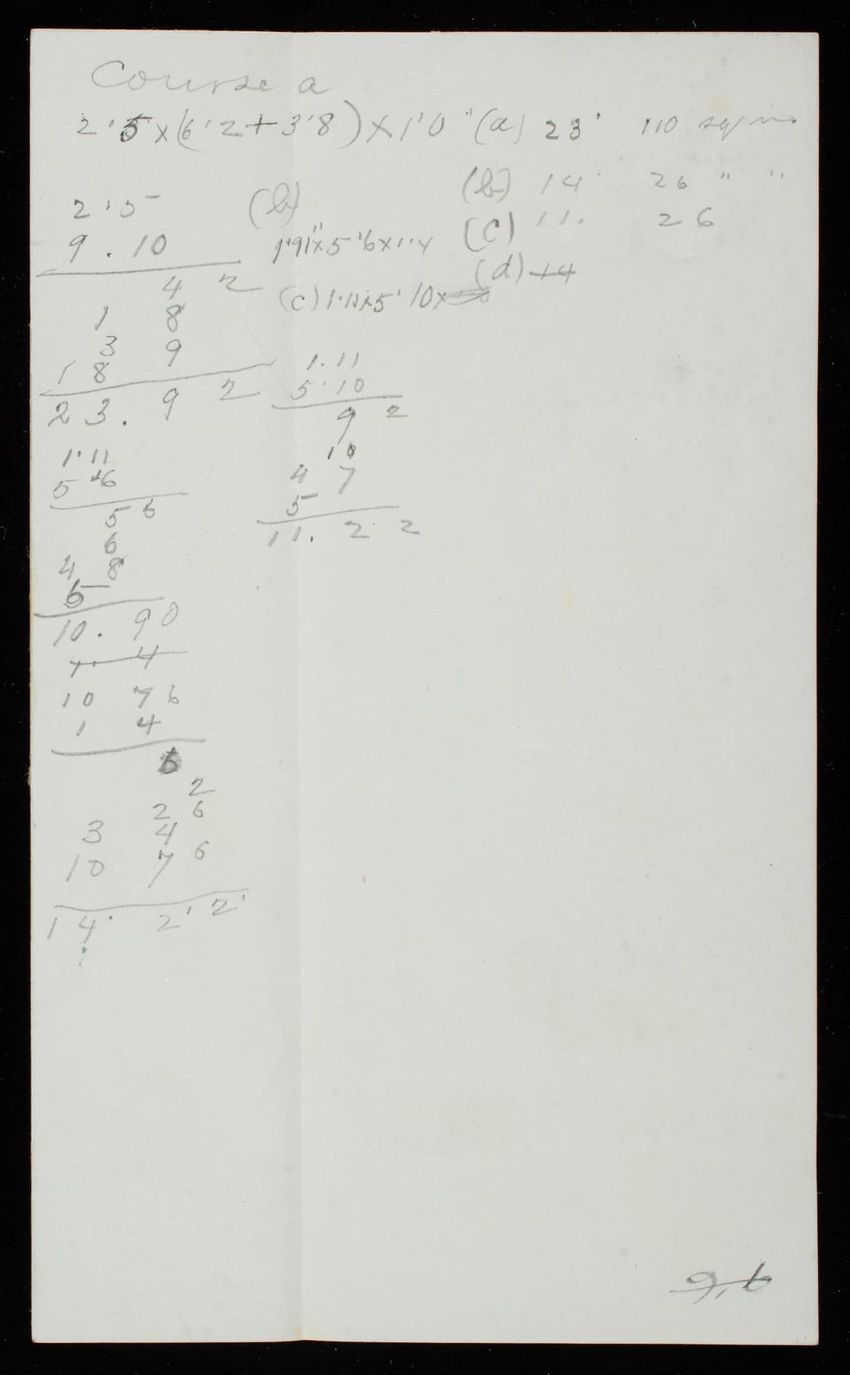 Course a
2'5 x (6'2 + 3'8) x 1'0" (a) 23' 110 sq ins
(b) 14' 26 " "
(c) 11. 26
(d) 14
2'5
9.10
4 2
1 8
3 9
1 8
23. 9 2
(b)
1'11" x 5'6 x 1'.4
(c) 1'11 x 5'10 x
1.11
5.10
9 2
10
4 7
5
11. 2 2
1'11
5 6
5 6
6
4 8
5
10. 90
1. 4
10 7 6
1 4
6
2
2 6
3 4
10 7 6
14' 2' 2'
9,6